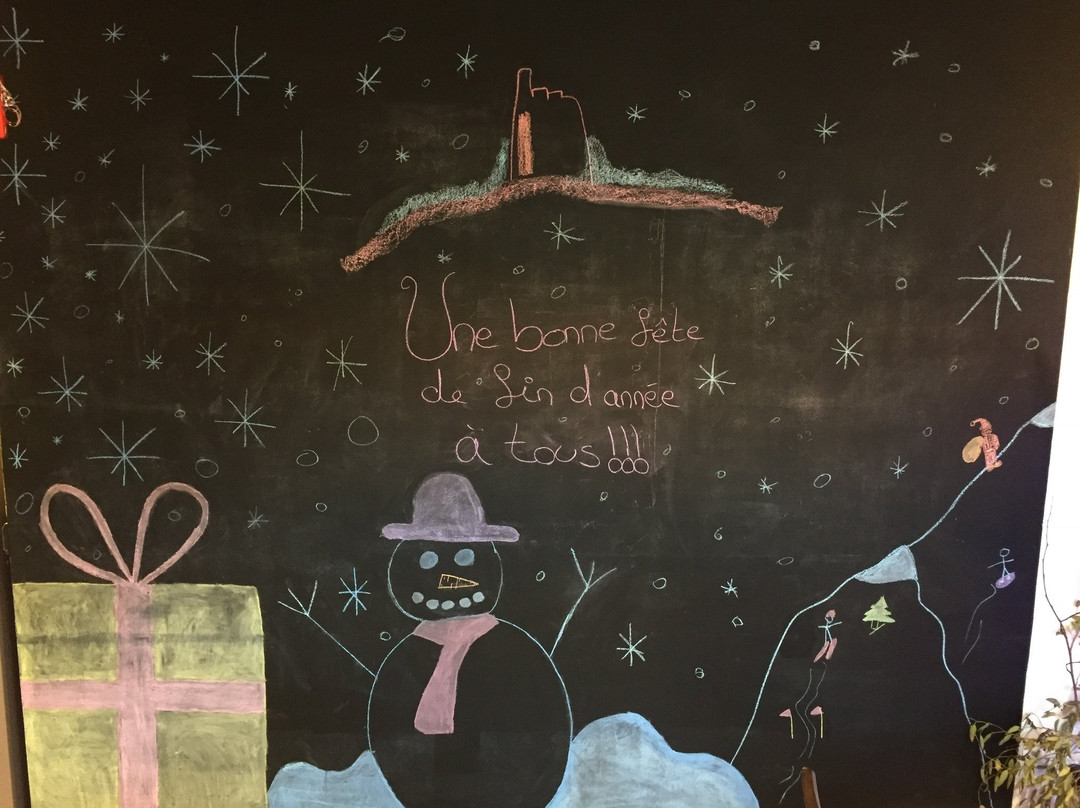 Une bonne fête
de fin d'année
à tous!!!